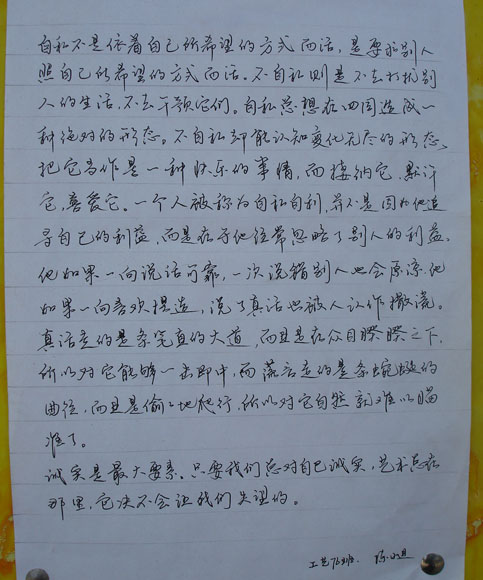 自私不是依着自己所希望的方式而活,是要求别人
照自己所希望的方式而活。不自私则是不去打扰别
人的生活,不去干预它们。自私总想在四周造成一
种绝对的形态。不自私却能认知变化无尽的形态、
把它当作是一种快乐的事情,而接纳它、默许
它、喜爱它。一个人被称为自私自利,并不是因为他追
寻自己的利益,而是在于他经常忽略了别人的利益。
他如果一向说话可靠,一次说错别人也会原谅,他
如果一向喜欢捏造,说了真话也被人认作撒谎。
真话走的是条笔直的大道,而且是在众目睽睽之下,
所以对它能够一击即中,而谎言走的是条蜿蜒的
曲径,而且是偷々地爬行,所以对它自然就难以瞄
准了。
诚实是最大要素。只要我们总对自己诚实,艺术总在
那里,它决不会让我们失望的。
工艺76班